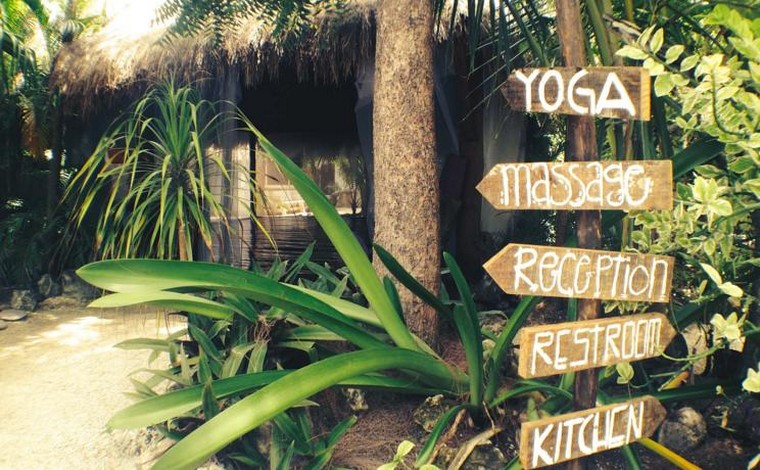 YOGA
massage
RECEPTION
RESTROOM
KITCHEN